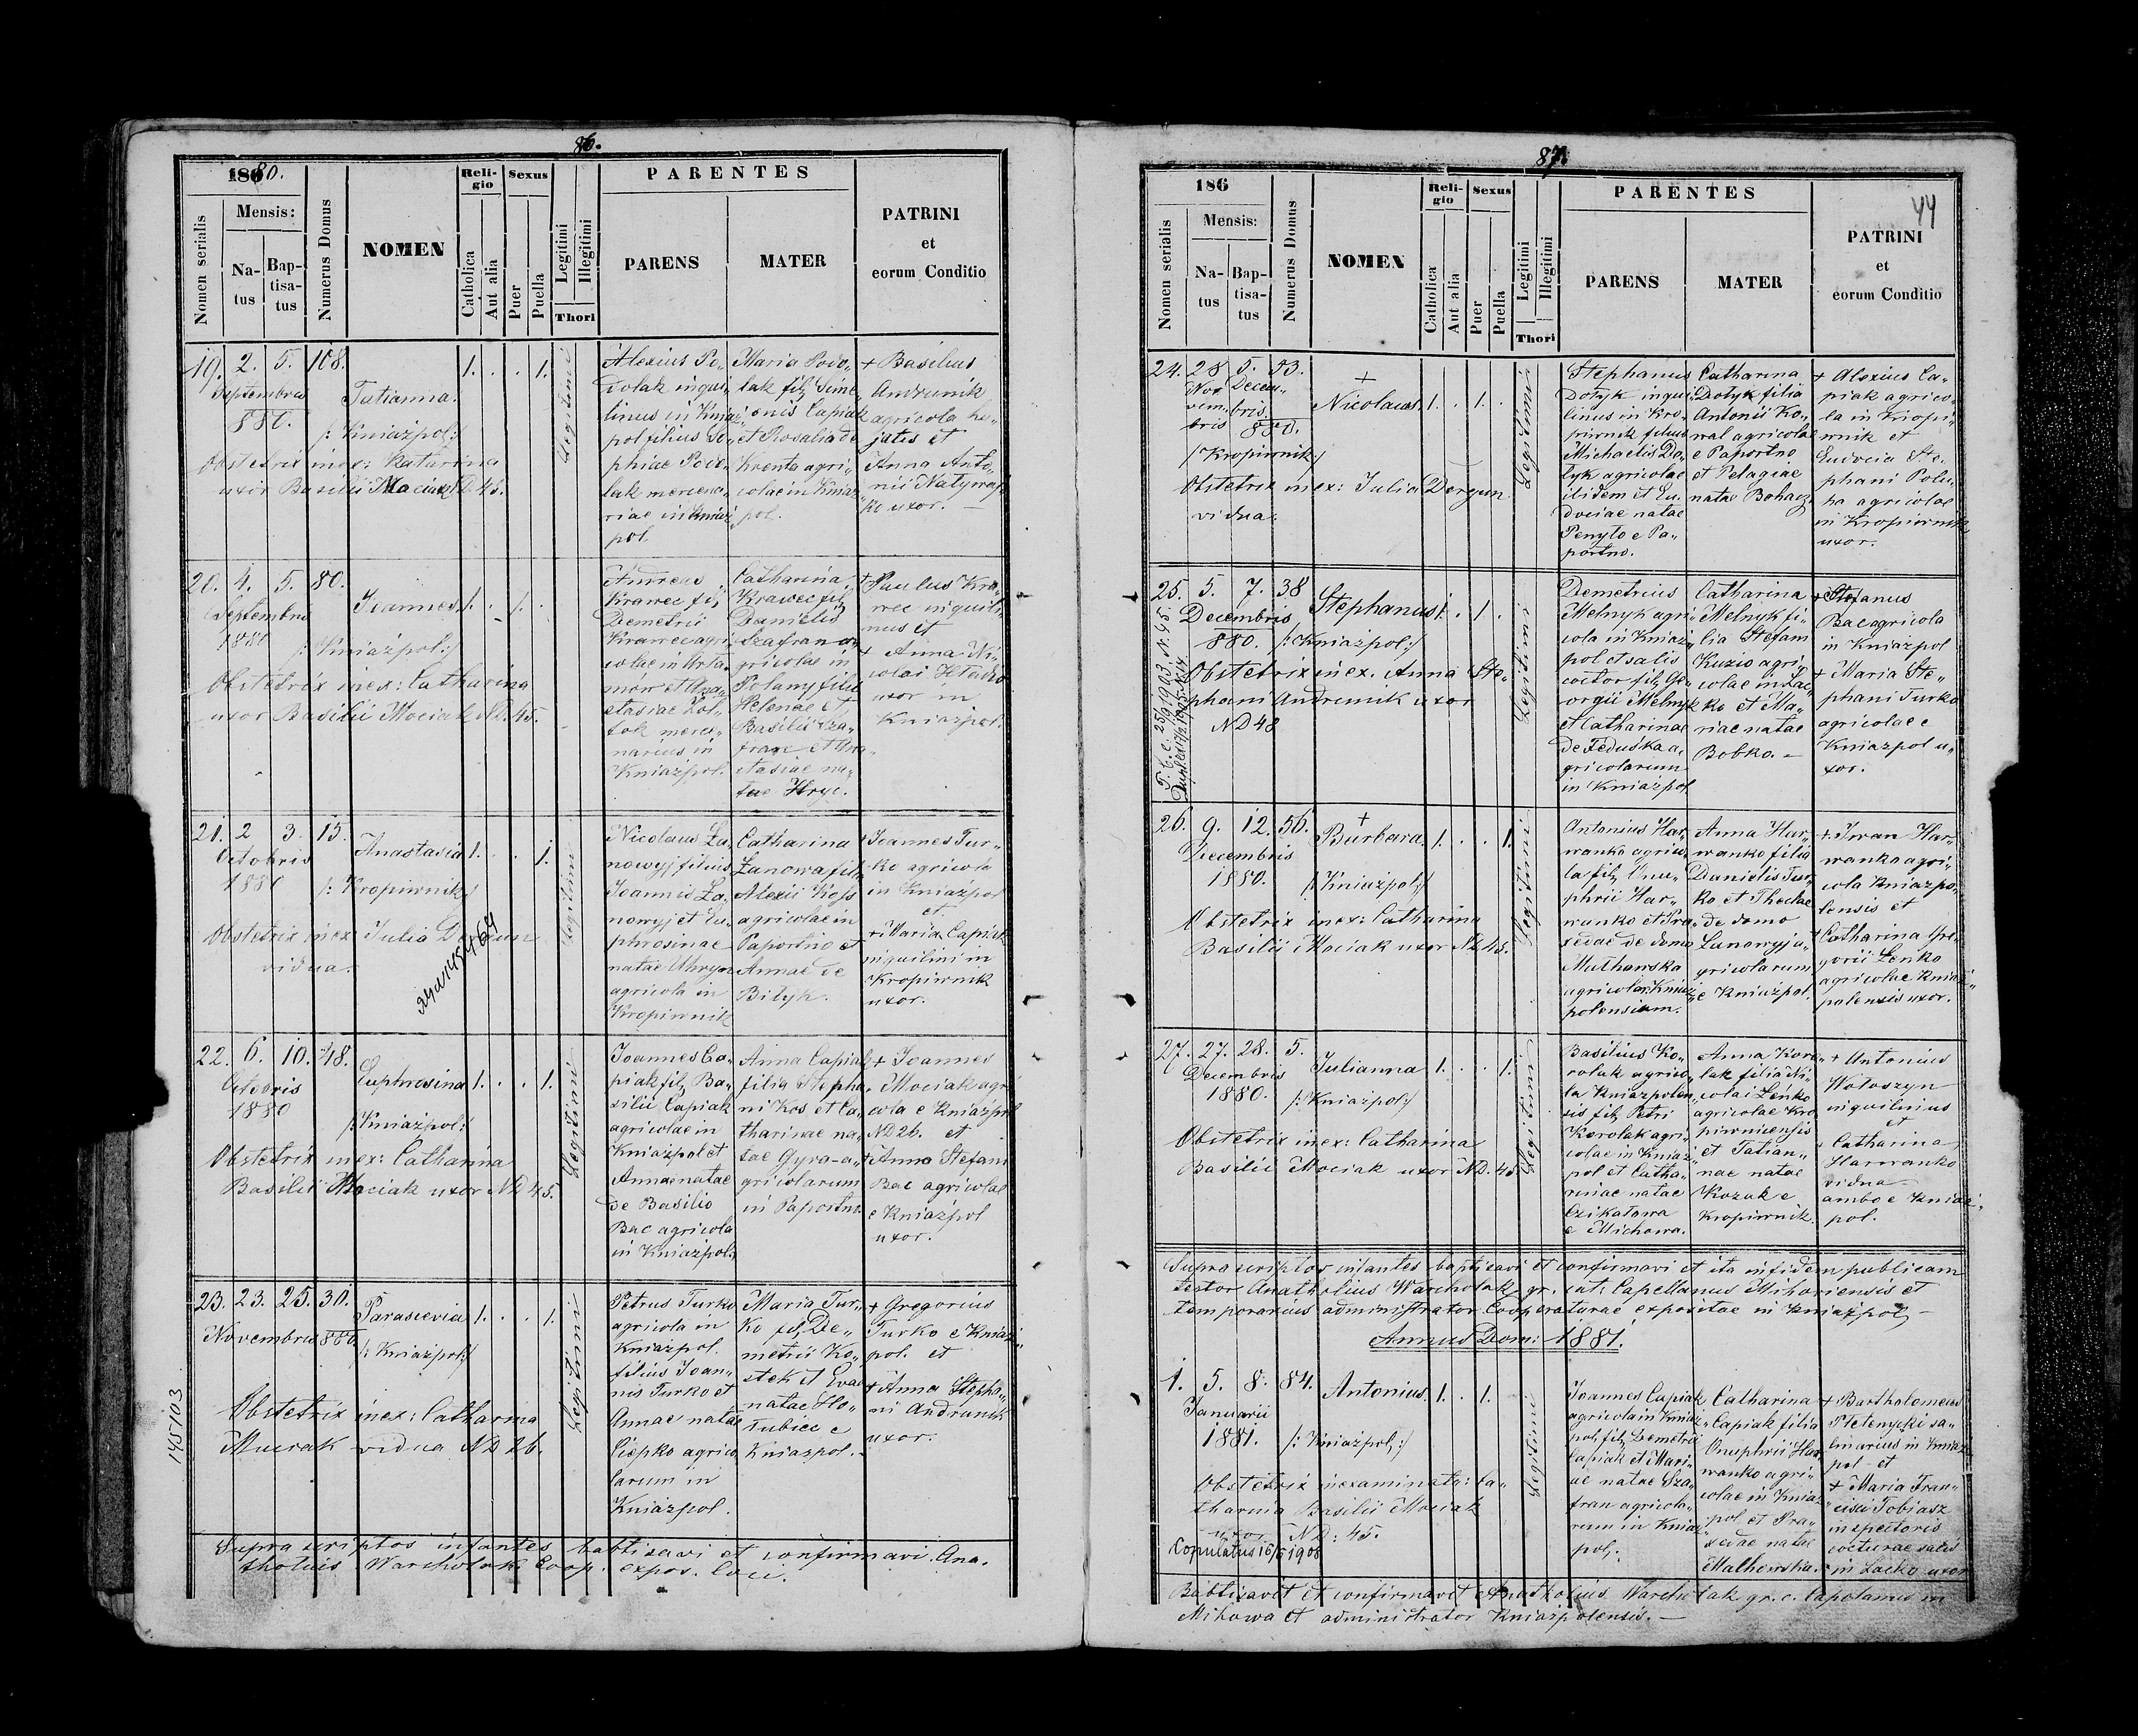 86.
1880.
Nomen serialis
Mensis:
Na-
tus
Bap-
tisa-
tus
Numerus Domus
NOMEN
Reli-
gio
Catholica
Aut alia
Sexus
Puer
Puella
Legitimi
Illegitimi
Thori
PARENTES
PARENS
MATER
PATRINI
et
eorum Conditio
19. 2. 5. 108.
Septembris
880.
Tatianna.
/: Kniaźpol:/
1. . . 1.
Legitimi
Obstetrix inex: Katarina
uxor Basilii Maciak N.D. 45.
Alexius Po„
dolak inqui„
linus in Kniaź„
pol filius So„
phiae Podo„
lak mercena„
riae in Kniaź
pol.
Maria Podo„
lak filj Sime„
onis Capiak
et Rosalia de
Kventa agri„
colae in Kniaź„
pol.
+ Basilius
Andrunik
agricola ho„
jatis et
Anna Anto„
nii Natyna„
ko uxor. —
20. 4. 5. 80.
Septembris
1880
Ioannes
/: Kniaźpol:/
1. . 1. .
Obstetrix inex: Catharina
uxor Basilii Mociak N.D. 45.
Andreas
Krawec filj
Demetrii
Krawec agri„
colae in Arta„
mów et Ana„
stasiae Żoł„
tok merce„
narius in
Kniaźpol.
Catharina
Krawec filj
Danielis
Szafran a„
gricolae in
Polany filii
Helenae et
Basilii Sza„
fran et Ana„
stasiae na„
tae Hryc.
+ Paulus Kra„
wec inquili„
nus et
+ Anna Ni„
colai Hladko
uxor in
Kniaźpol.
21. 2 3. 15.
Octobris
1880
Anastasia
/: Kropiwnik/
1. . . 1.
Legitimi
Obstetrix inex Julia Dergun
vidua.
Nicolaus Ła„
nowyj filius
Ioannis Ła„
nowyj et Eu„
phrosinae
natae Uhryn
agricola in
Kropiwnik
Catharina
Łanowa fil„
Alexii Koss
agricolae in
Paportno et
Annae de
Bilyk.
+ Ioannes Tur„
ko agricola
in Kniaźpol
et
+ Maria Capiak
inquilini in
Kropiwnik
uxor.
22. 6. 10. 48.
Octobris
1880
Euphrosina
/: Kniaźpol:/
1. . . 1.
Legitimi
Obstetrix inex: Catharina
Basilii Mociak uxor N.D 45.
Ioannes Ca„
piak filj Ba„
silii Capiak
agricolae in
Kniaźpol et
Annae natae
de Basilio
Bac agricola
in Kniaźpol:
Anna Capiak
filia Stepha„
ni Kos et Ca„
tharinae na„
tae Gyra- a„
gricolarum
in Paportno
+ Ioannes
Mociak agri„
cola e Kniaźpol
ND 26. et
+ Anna Stefani
Bac agricolae
e Kniaźpol
uxor.
23. 23. 25. 30.
Novembris 880
Parascevia
/: Kniaźpol:/
1. . . 1.
Legitimi
Obstetrix inex: Catharina
Mociak vidua N.D 26.
145103
Petrus Turko
agricola in
Kniaźpol.
filius Ioan„
nis Turko et
Annae natae
Ciepko agrico„
larum in
Kniaźpol.
Maria Tur„
ko filj De„
metrii Ko„
stek et Evae
natae Ho„
lubiec e
Kniaźpol.
+ Gregorius
Turko e Kniaź„
pol. et
+ Anna Stepha„
ni Andrunik
uxor.
Supra scriptos infantes babtisavi et confirmavi. Ana„
tholius Warcholak Coop. expos. Loci.
87.
44
186
Nomen serialis
Mensis:
Na-
tus
Bap-
tisa-
tus
Numerus Domus
NOMEN
Reli-
gio
Catholica
Aut alia
Sexus
Puer
Puella
Legitimi
Illegitimi
Thori
PARENTES
PARENS
MATER
PATRINI
et
eorum Conditio
24. 28 5. 53.
Novem„
bris
Decem„
bris
880.
+
Nicolaus
/Kropiwnik/
1. . 1. .
Legitimi
Obstetrix inex: Julia Dergun
vidua.
Stephanus
Dotyk inqui„
linus in Kro„
piwnik filius
Michaelis Do„
tyk agricolae
ibidem et Eu„
dociae natae
Penylo e Pa„
portno.
Catharina
Dotyk filia
Antonii Ko„
wal agricolae
e Paportno
et Pelagiae
natae Bohacz.
+ Alexius Ca„
piak agrico„
la in Kropi„
wnik et
Eudocia Ste„
phani Polu„
ha agricolae
in Kropiwnik
uxor.
25. 5. 7. 38
Decembris
880.
Stephanus
/: Kniaźpol:/
1. . 1. .
Legitimi
Obstetrix inex. Anna Ste„
phani Andrunik uxor
ND 48
Demetrius
Melnyk agri„
cola in Kniaź„
pol et salis
coctor filj Ge„
orgii Melnyk
et Catharinae
de Feduśka a„
gricolarum
in Kniaźpol
Catharina
Melnyk fi„
lia Stefani
Kuzio agri„
colae in Lac„
ko et Ma„
riae natae
Bobko. —
+ Stefanus
Bac agricola
in Kniaźpol
+ Maria Ste„
phani Turko
agricolae e
Kniaźpol u„
xor.
26. 9. 12. 56.
Decembris
1880.
+
Barbara
/: Kniaźpol:/
1. . . 1.
Legitimi
Obstetrix inex: Catharina
Basilii Mociak uxor N.D. 45.
Antonius Har„
wanko agrico„
la filj Onu„
phrii Har„
wanko et Pra„
xedae de domo
Malhowska
agricolar. Kniaź„
polensium.
Anna Har„
wanko filia
Danielis Tur„
ko et Theclae
de domo
Łanowyj a„
gricolarum
e Kniaźpol.
+ Iwan Har„
wanko agri„
cola Kniaźpo„
lensis et
+ Catharina Gre„
gorii Leńko
agricolae Kniaź„
polensis uxor.
27. 27. 28. 5.
Decembris
1880.
Julianna
/: Kniaźpol:/
1. . . 1.
Legitimi
Obstetrix inex: Catharina
Basilii Mociak uxor N.D. 45
Basilius Ko„
rolak agrico„
la Kniaźpolen„
sis filj Petri
Korolak agri„
colae in Kniaź„
pol et Catha„
rinae natae
Czikatowa
e Michowa.
Anna Koro„
lak filia Ni„
colai Leńko
agricolae Kro
piwnicensis
et Tatian„
nae natae
Kozak e
Kropiwnik.
+ Antonius
Wołoszyn
inquilinius
et
+ Catharina
Harwanko
vidua
ambo e Kniaź„
pol.
Supra scriptos infantes baptisavi et confirmavi et ita in fidem publicam
testor Anatholius Warcholak gr. cat: Capellanus Mihoviensis et
temporarius administrator Cooperaturae expositae in Kniaźpol —
Annus Dom: 1881.
1. 5. 8. 84.
Januarii
1881.
Antonius
/: Kniaźpol:/
1. . 1.
Legitimi
Obstetrix inexaminata: Ca„
tharina Basilii Mociak
uxor N.D: 45.
Copulatus 16/5 1908
Ioannes Capiak
agricola in Kniaź„
pol, filj Demetrii
Capiak et Mari„
ae natae Sza„
fran agricola„
rum in Kniaź„
pol.
Catharina
Capiak filia
Onuphrii Har„
wanko agri„
colae in Kniaź„
pol et Pra„
xedae natae
Malhowska.
+ Bartholomeus
Pletenycki sa„
linarius in Kniaź
pol et
+ Maria Fran„
cisci Tobiasz
inspectoris
cocturae salis
in Lacko uxor
Babtisavit et confirmavit Anatholius Warcholak gr. c. Capelanus in
Mihowa et administrator Kniaźpolensis. —